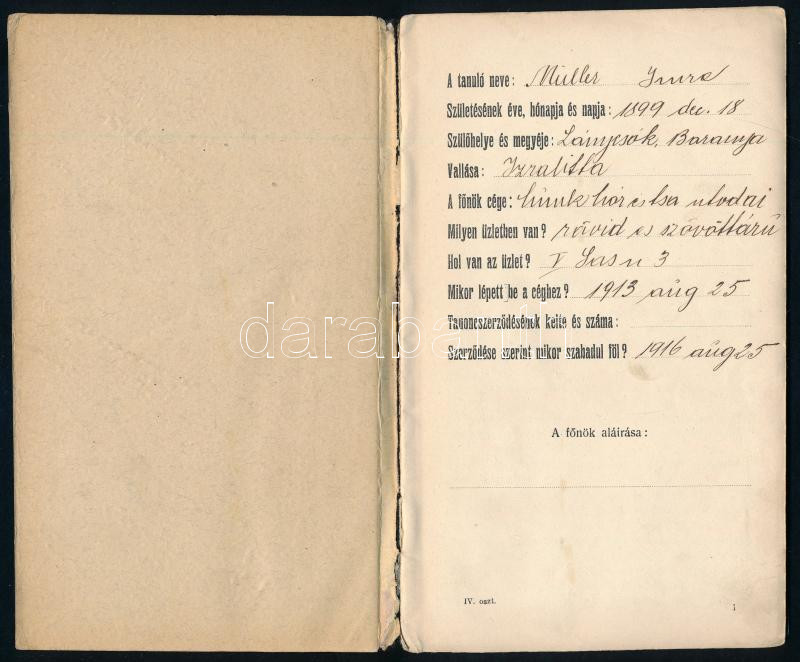 A tanuló neve: Müller Imre
Születésének éve, hónapja és napja: 1899 dec. 18
Szülőhelye és megyéje: Lánycsók, Baranya
Vallása: Izralitta
A főnök cége: és tsa utódai
Milyen üzletben van? rövid és szövöttárú
Hol van az üzlet? V Sas u 3
Mikor lépett be a céghez? 1913 aug 25
Tanoncszerződésének kelte és száma:
Szerződése szerint mikor szabadul föl? 1916 aug 25
darabanth
A főnök aláirása:
IV. oszt.
1